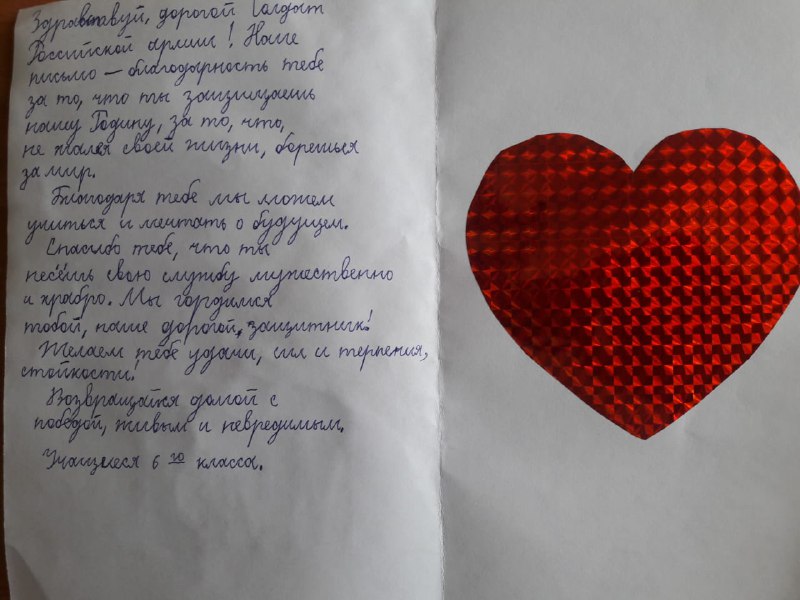 Здравствуй, дорогой Солдат
Российской армии! Наше
письмо – благодарность тебе
за то, что ты защищаешь
нашу Родину, за то, что,
не жалея своей жизни, борешься
за мир.
Благодаря тебе мы можем
учиться и мечтать о будущем.
Спасибо тебе, что ты
несёшь свою службу мужественно
и храбро. Мы гордимся
тобой, наше дорогой, защитник!
Желаем тебе удачи, сил и терпения,
стойкости!
Возвращайся домой с
победой, живым и невредимым.
Учащиеся 6 го класса.